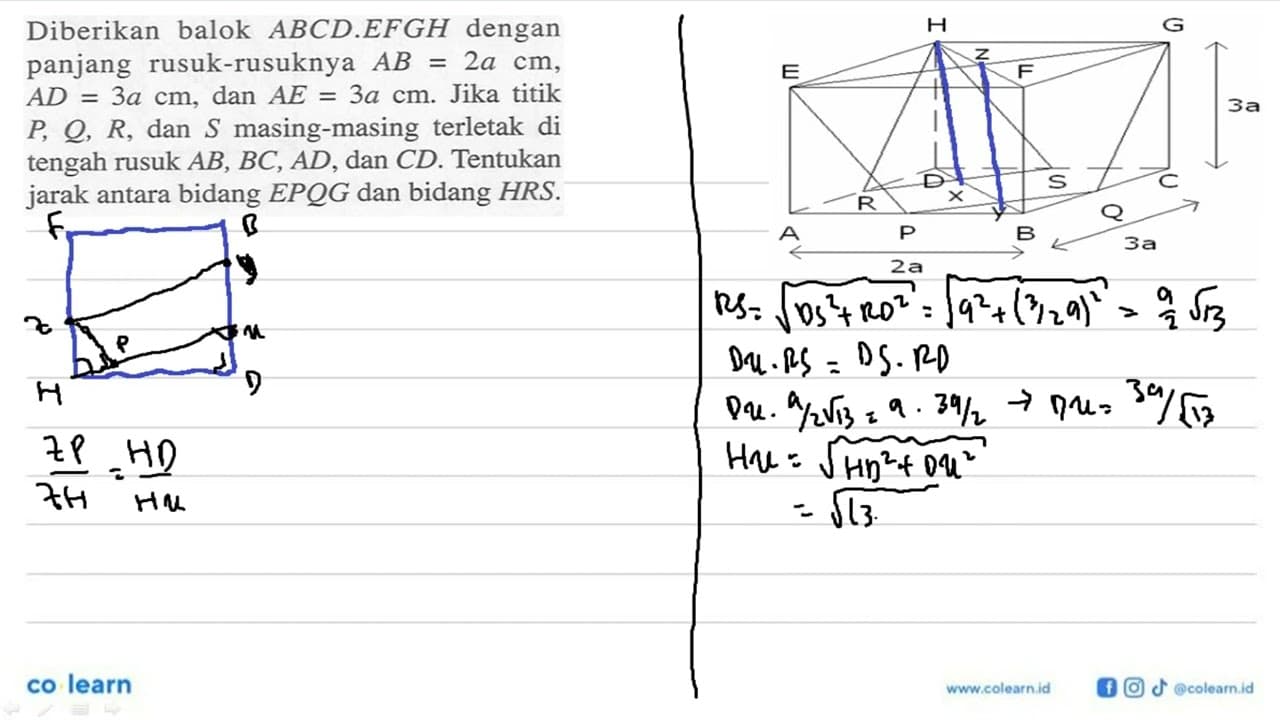 Diberikan balok ABCD.EFGH dengan
panjang rusuk-rusuknya AB = 2a cm,
AD = 3a cm, dan AE = 3a cm. Jika titik
P, Q, R, dan S masing-masing terletak di
tengah rusuk AB, BC, AD, dan CD. Tentukan
jarak antara bidang EPQG dan bidang HRS.
F B
y
z x
P
H D
ZP/ZH = HD/Hx
H G
E Z F
3a
D S C
R x
y Q
A P B
3a
2a
RS = √DS²+RD² = √a²+(3/2a)² = a/2 √13
Dx.RS = DS.RD
Dx. a/2√13 = a. 3a/2 → Dx = 3a/√13
Hx = √HD²+Dx²
= √13.
co learn
www.colearn.id @colearn.id